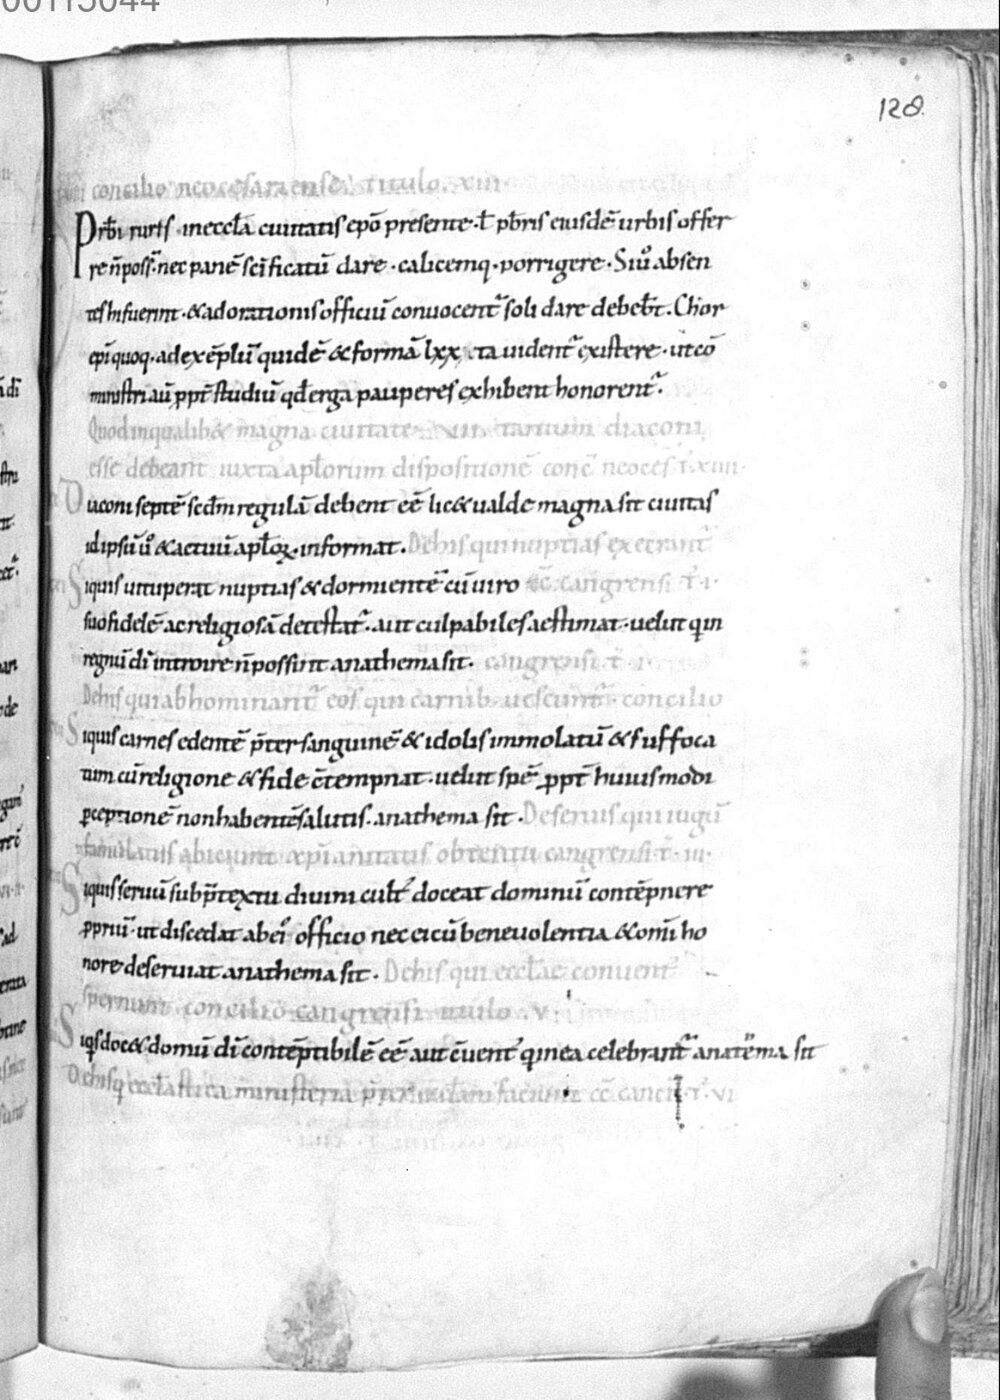 128
concilio neocesariense. titulo. xiii
Prb̄i ruris ineccl̄a ciuitatis ep̄o presente. l̄ pb̄ris eiusdē urbis offer
re n̄ poss̄. nec panē sc̄ificatū dare. calicemq. porrigere. Si ů absen
tes hi fuerint. & adorationis officiū conuocent᷑ soli dare debeb̄t. Chor
ep̄i quoq. ad exēplū quidē & formā lxx ta uident᷑ existere. ut cō
ministri aū ppt̄ studiū qd̄ erga pauperes exhibent honorent᷑.
Quod inqualib& magna ciuitate. uii. tantum diaconi
esse debeant iuxta apl̄orum dispositionē conc̄ neoces̄ t̄. xiiii.
Diaconi septē scd̄m regulā debent eē lic& ualde magna sit ciuitas
idipsū ů & actuū apl̄oꝝ. informat. De his qui nuptias execrant᷑
Siquis uituperat nuptias & dormientē cū uiro cc̄ cangrensi t̄. i.
suo fidelē ac religiosā detestat᷑. aut culpabiles aestimat. uelut qui in
regnū dī introire n̄ possint anathema sit. cangrensi t̄. i.
De his qui abhominant᷑ eos qui carnib. uescunt᷑. concilio
Siquis carnes edentē p̄ter sanguinē & idolis immolatū & suffoca
tum cū religione & fide c̄tempnat. uelut spē ppt̄ huiusmodi
ꝑceptionē non habentē salutis. anathema sit. De seruis qui iugū
famulatus abiciunt xp̄ianitatis obtentu cangrensi. t̄. iii.
Siquis seruū sub p̄textu diuini cult᷑ doceat dominū contēpnere
ꝓpriū. ut discedat ab ei᷒ officio nec ei cū beneuolentia & om̄i ho
nore deseruiat anathema sit. De his qui eccl̄ae conuent᷑
spernunt concilio cangrensi titulo. v.
Siqs doc& domū dī contēptibilē eē aut c̄uent᷑ qi in ea celebrant᷑ anatēma sit
De his q eccl̄astica ministeria faciunt cc̄ t̄. vi